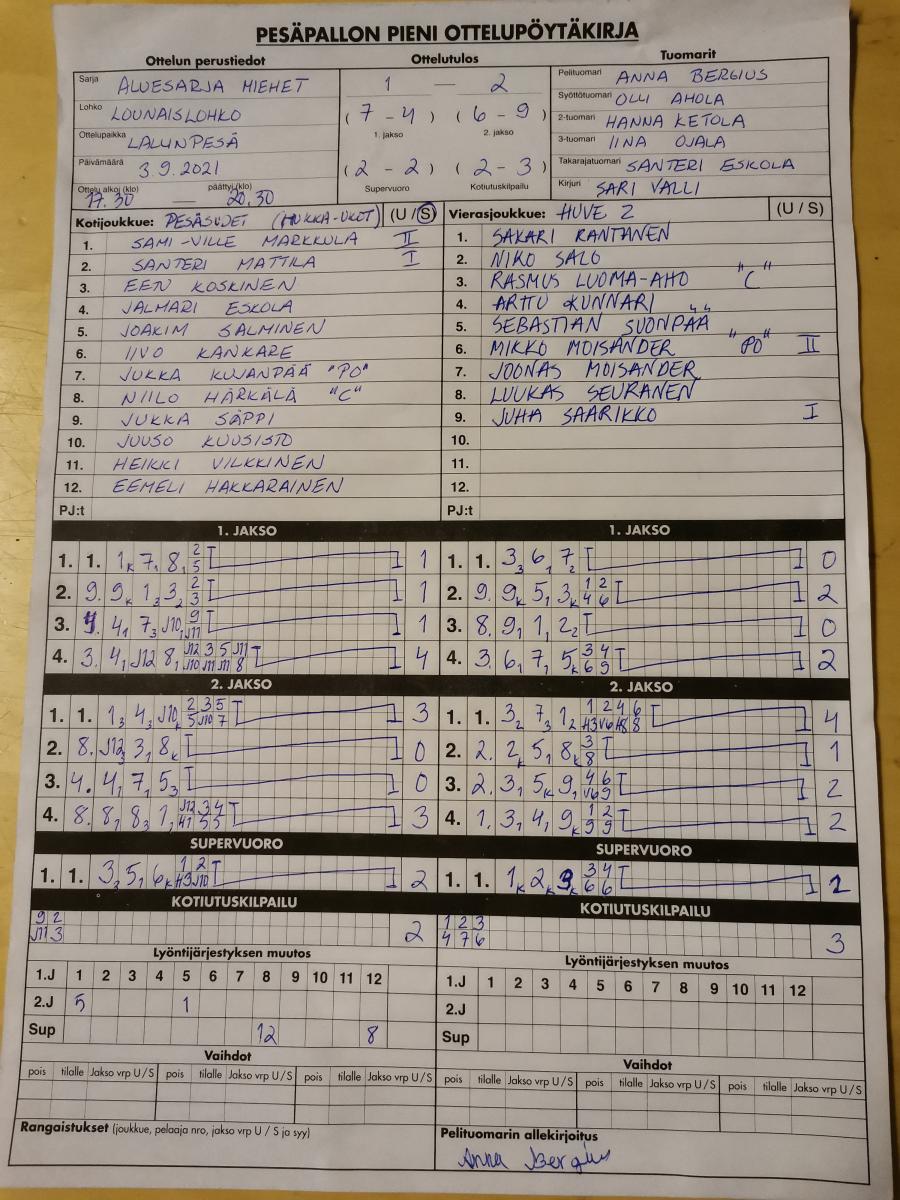 PESÄPALLON PIENI OTTELUPÖYTÄKIRJA
Ottelun perustiedot
Sarja ALUESARJA MIEHET
Lohko LOUNAISLOHKO
Ottelupaikka LALUNPESÄ
Päivämäärä 3.9.2021
Ottelu alkoi (klo) päättyi (klo)
17.30 — 20.30
Ottelutulos
1 — 2
( 7 - 4 ) ( 6 - 9 )
1. jakso 2. jakso
( 2 - 2 ) ( 2 - 3 )
Supervuoro Kotiutuskilpailu
Tuomarit
Pelituomari ANNA BERGIUS
Syöttötuomari OLLI AHOLA
2-tuomari HANNA KETOLA
3-tuomari IINA OJALA
Takarajatuomari SANTERI ESKOLA
Kirjuri SARI VALLI
Kotijoukkue: PESÄSUDET (HUKKA-UKOT) (U / S)
1. SAMI-VILLE MARKKULA II
2. SANTERI MATTILA I
3. EETU KOSKINEN
4. JALMARI ESKOLA
5. JOAKIM SALMINEN
6. IIVO KANKARE
7. JUKKA KUJANPÄÄ "PO"
8. NIILO HÄRKÄLÄ "C"
9. JUKKA SÄPPI
10. JUUSO KUUSISTO
11. HEIKKI VILKKINEN
12. EEMELI HAKKARAINEN
PJ:t
Vierasjoukkue: HUVE 2 (U / S)
1. SAKARI RANTANEN
2. NIKO SALO
3. RASMUS LUOMA-AHO "C"
4. ARTTU KUNNARI
5. SEBASTIAN SUONPÄÄ
6. MIKKO MOISANDER "PO" II
7. JOONAS MOISANDER
8. LUUKAS SEURANEN
9. JUHA SAARIKKO I
10.
11.
12.
PJ:t
1. JAKSO
1. 1. 1K 71 81 2 5 1
2. 9. 9K 13 32 2 3 1
3. 41 73 J10 9 J11 1
4. 3. 41 J12 81 J12 3 5 J11 J10 J11 J11 8 4
1. JAKSO
1. 1. 33 61 72 0
2. 9. 9K 51 3K 1 2 4 6 2
3. 8. 91 11 22 0
4. 3. 61 71 5K 3 4 6 9 2
2. JAKSO
1. 1. 13 41 J10K 2 3 5 5 J10 7 3
2. 8. J12 31 8K 0
3. 4. 41 71 53 0
4. 8. 81 83 11 J12 3 4 H1 5 5 3
2. JAKSO
1. 1. 32 73 12 1 2 4 6 H3 V6 H8 8 4
2. 2. 2K 51 8K 3 8 1
3. 2. 31 5K 91 4 6 V6 9 2
4. 1. 31 41 9K 1 2 9 9 2
SUPERVUORO
1. 1. 33 51 6K 1 2 H9 J10 2
SUPERVUORO
1. 1. 1K 2K 3K 3 4 6 6 2
KOTIUTUSKILPAILU
9 2
J11 3 2
KOTIUTUSKILPAILU
1 2 3
4 7 6 3
Lyöntijärjestyksen muutos
1.J 1 2 3 4 5 6 7 8 9 10 11 12
2.J 5 1
Sup 12 8
Lyöntijärjestyksen muutos
1.J 1 2 3 4 5 6 7 8 9 10 11 12
2.J
Sup
Vaihdot
pois tilalle Jakso vrp U / S pois tilalle Jakso vrp U / S pois tilalle Jakso vrp U / S
Vaihdot
pois tilalle Jakso vrp U / S pois tilalle Jakso vrp U / S pois tilalle Jakso vrp U / S
Rangaistukset (joukkue, pelaaja nro, jakso vrp U / S ja syy)
Pelituomarin allekirjoitus
Anna Bergius